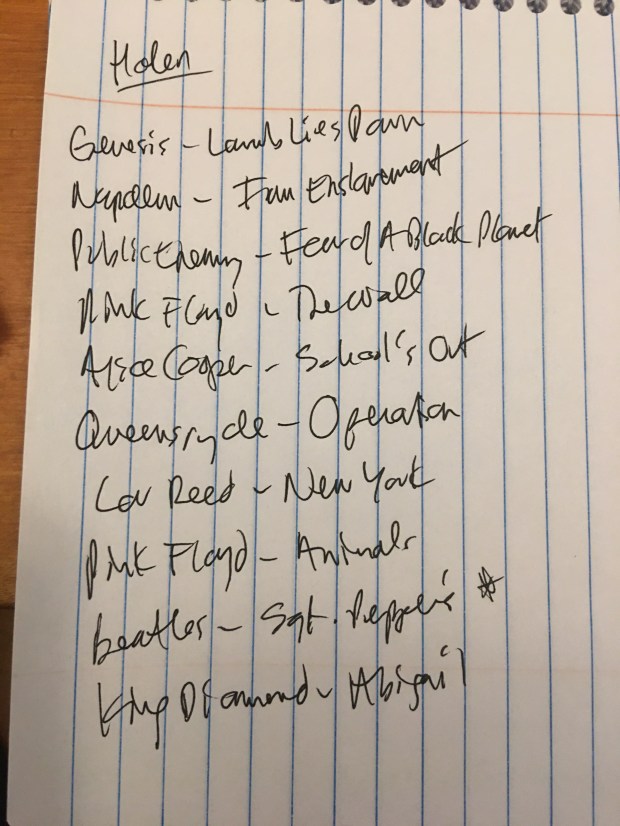 Holen
Genesis - Lamb Lies Down
Napalm - Enslavement
Public Enemy - Fear of A Black Planet
Pink Floyd - The Wall
Alice Cooper - School's Out
Queensryche - Operation
Lou Reed - New York
Pink Floyd - Animals
Beatles - Sgt. Pepper's *
King Diamond - Abigail